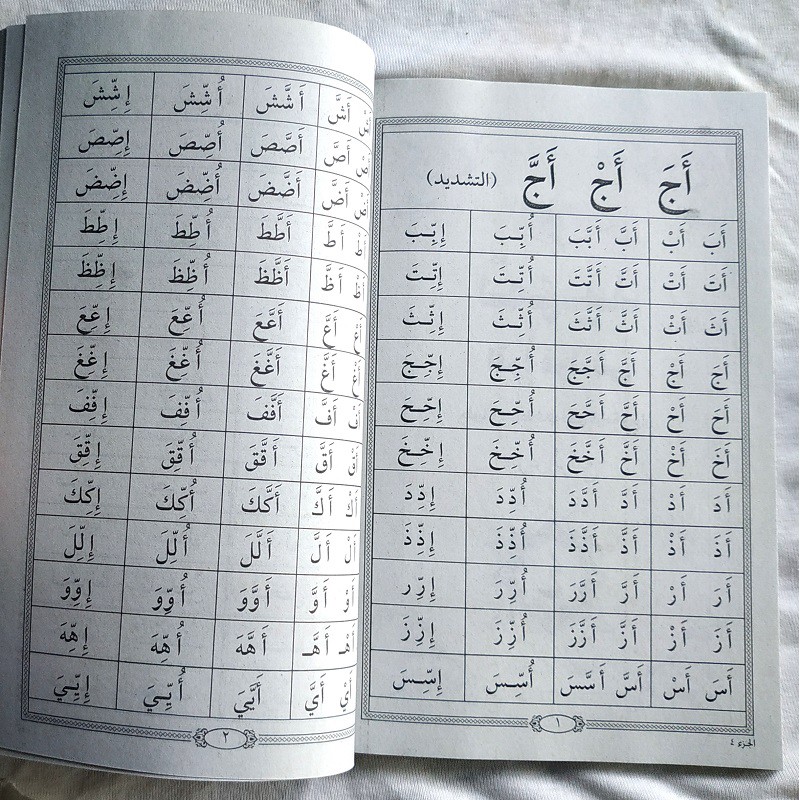 أَجَ أَجْ أَجَّ (التشديد)
أَبَ أَبْ أَبَّ أَبَّبَ أُبِّبَ إِبِّبَ
أَتَ أَتْ أَتَّ أَتَّتَ أُتِّتَ إِتِّتَ
أَثَ أَثْ أَثَّ أَثَّثَ أُثِّثَ إِثِّثَ
أَجَ أَجْ أَجَّ أَجَّجَ أُجِّجَ إِجِّجَ
أَحَ أَحْ أَحَّ أَحَّحَ أُحِّحَ إِحِّحَ
أَخَ أَخْ أَخَّ أَخَّخَ أُخِّخَ إِخِّخَ
أَدَ أَدْ أَدَّ أَدَّدَ أُدِّدَ إِدِّدَ
أَذَ أَذْ أَذَّ أَذَّذَ أُذِّذَ إِذِّذَ
أَرَ أَرْ أَرَّ أَرَّرَ أُرِّرَ إِرِّر
أَزَ أَزْ أَزَّ أَزَّزَ أُزِّزَ إِزِّزَ
أَسَ أَسْ أَسَّ أَسَّسَ أُسِّسَ إِسِّسَ
١
الجزء ٤
أَشَّ أَشَّشَ أُشِّشَ إِشِّشَ
أَصَّ أَصَّصَ أُصِّصَ إِصِّصَ
أَضَّ أَضَّضَ أُضِّضَ إِضِّضَ
أَطَّ أَطَّطَ أُطِّطَ إِطِّطَ
أَظَّ أَظَّظَ أُظِّظَ إِظِّظَ
أَعَّ أَعَّعَ أُعِّعَ إِعِّعَ
أَغَّ أَغَّغَ أُغِّغَ إِغِّغَ
أَفَّ أَفَّفَ أُفِّفَ إِفِّفَ
أَقَّ أَقَّقَ أُقِّقَ إِقِّقَ
أَكَّ أَكَّكَ أُكِّكَ إِكِّكَ
أَلَّ أَلَّلَ أُلِّلَ إِلِّلَ
أَوَّ أَوَّوَ أُوِّوَ إِوِّوَ
أَهَّـ أَهَّهَ أُهِّهَ إِهِّهَ
أَيْ أَيَّ أَيَّيَ أُيِّيَ إِيِّيَ
٢